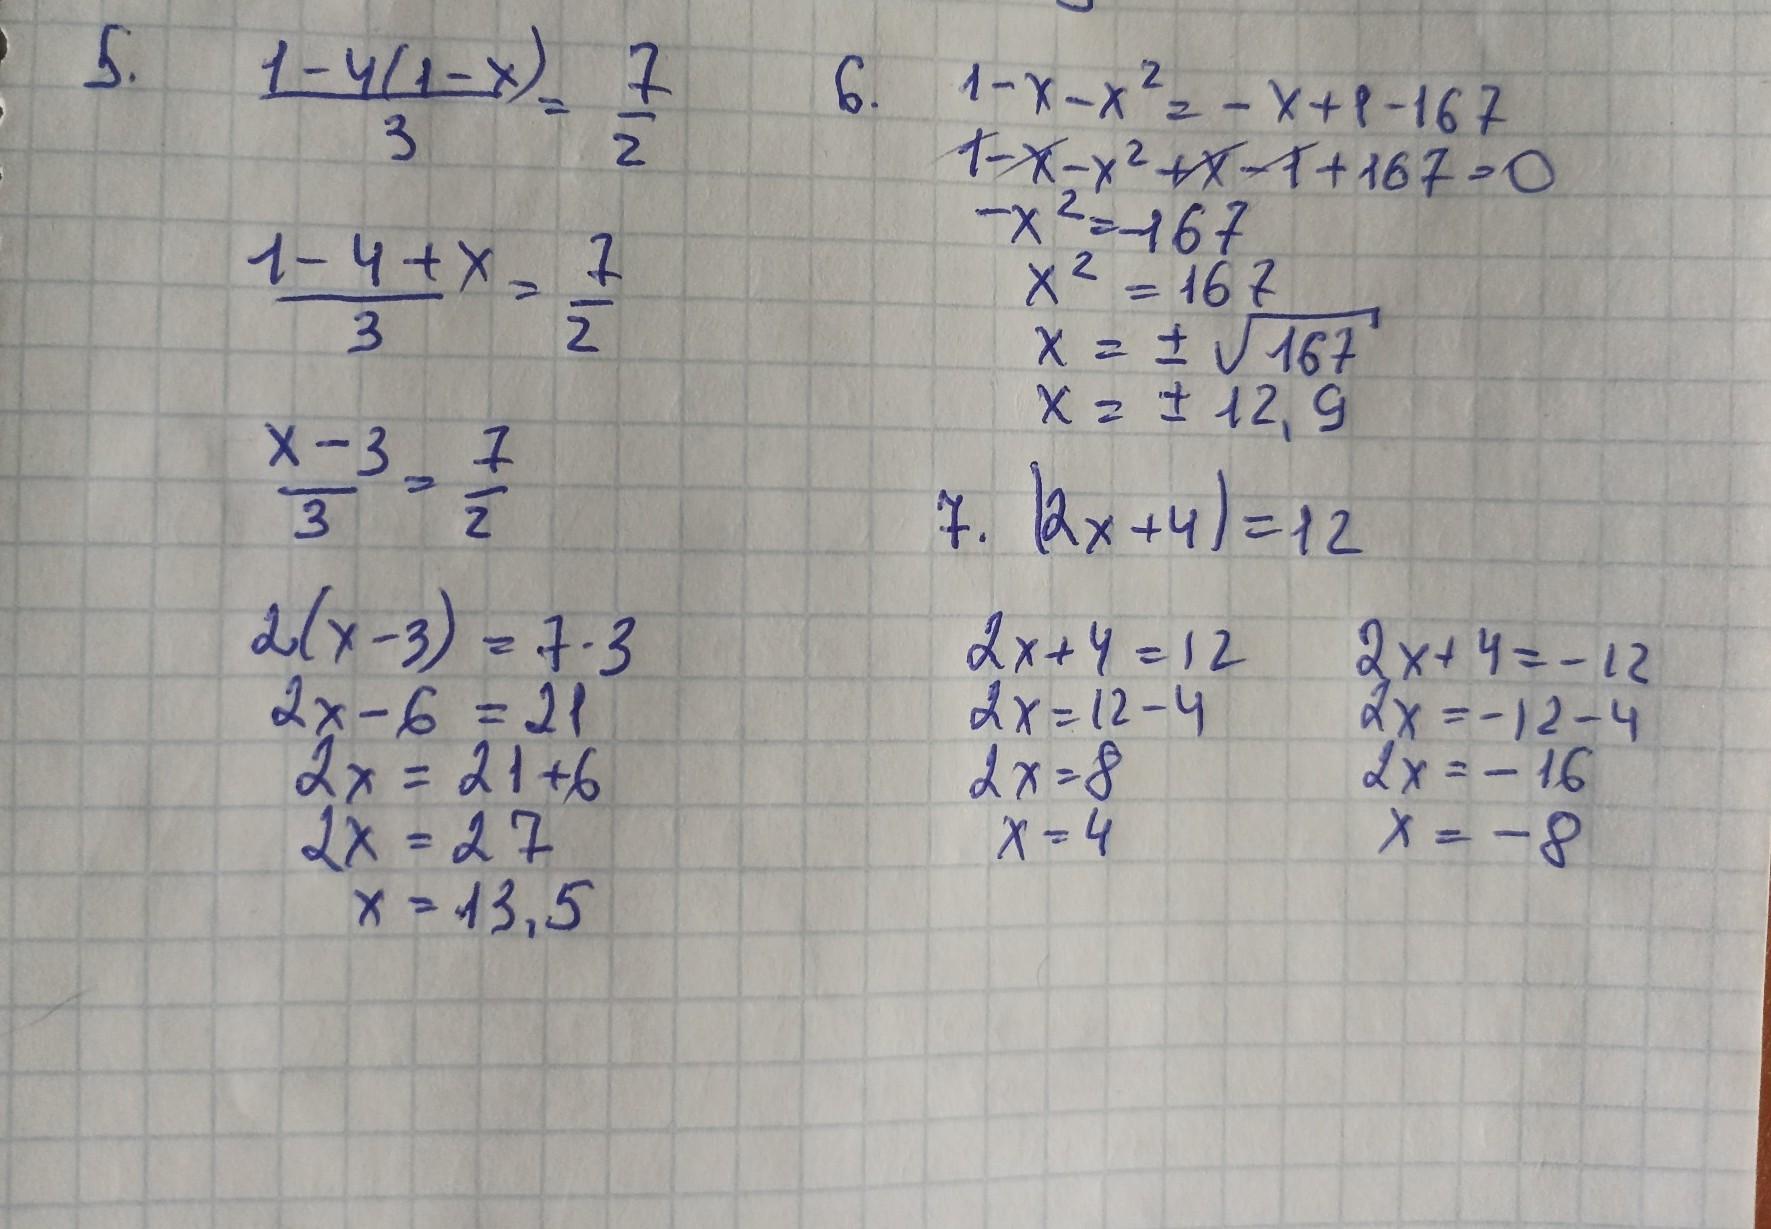 5. (1-4(1-x))/3 = 7/2
(1-4+x)/3 = 7/2
(x-3)/3 = 7/2
2(x-3) = 7·3
2x-6 = 21
2x = 21+6
2x = 27
x = 13,5
6. 1-x-x² = -x+1-167
1-x-x²+x-1+167=0
-x²=-167
x² = 167
x = ±√167
x = ± 12,9
7. |2x+4|=12
2x+4=12
2x=12-4
2x=8
x=4
2x+4=-12
2x=-12-4
2x=-16
x=-8